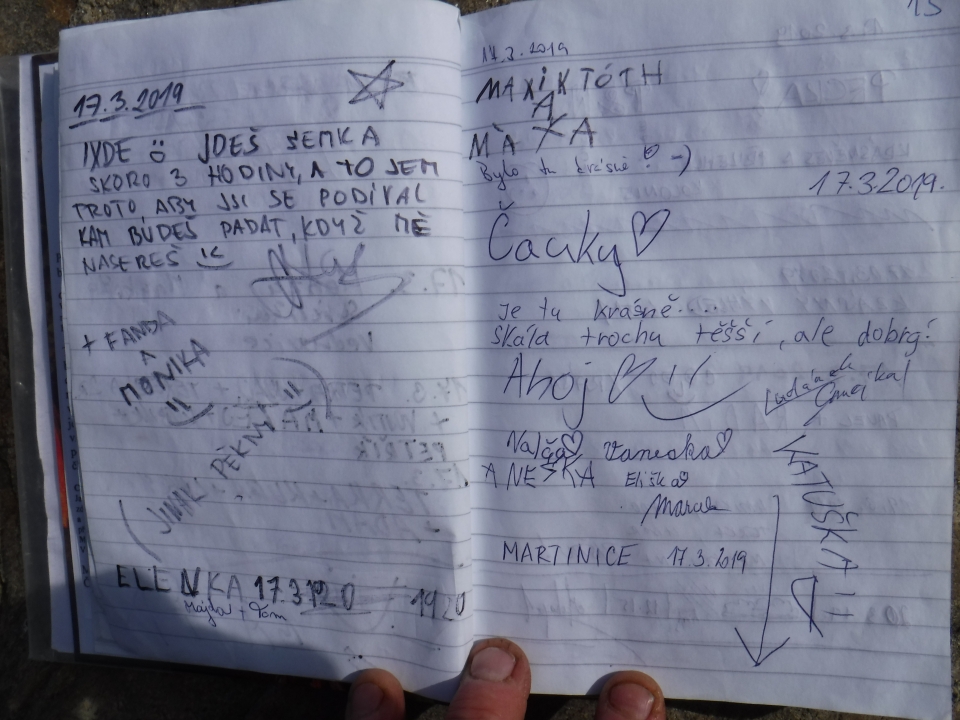 17.3.2019
IXDE JDEŠ SEMKA
SKORO 3 HODINY, A TO JEM
TROTO, ABY JSI SE PODÍVAL
KAM BUDEŠ PADAT, KDYŽ MĚ
NASEREŠ
+ FANDA
A
MONIKA
(JINAK PĚKNÝ)
ELENKA 17.3.
Majda + Tom
1920
13
17.3.2019
MAXIK TÓTH
A
MÀXA
Bylo tu krásně! :-)
17.3.2019.
Čauky
Je tu krásně....
skála trochu těšší, ale dobrý!
Ahoj
Vaneska
ANEŠKA Eliška
MARTINICE 17.3.2019
KATUŠKA